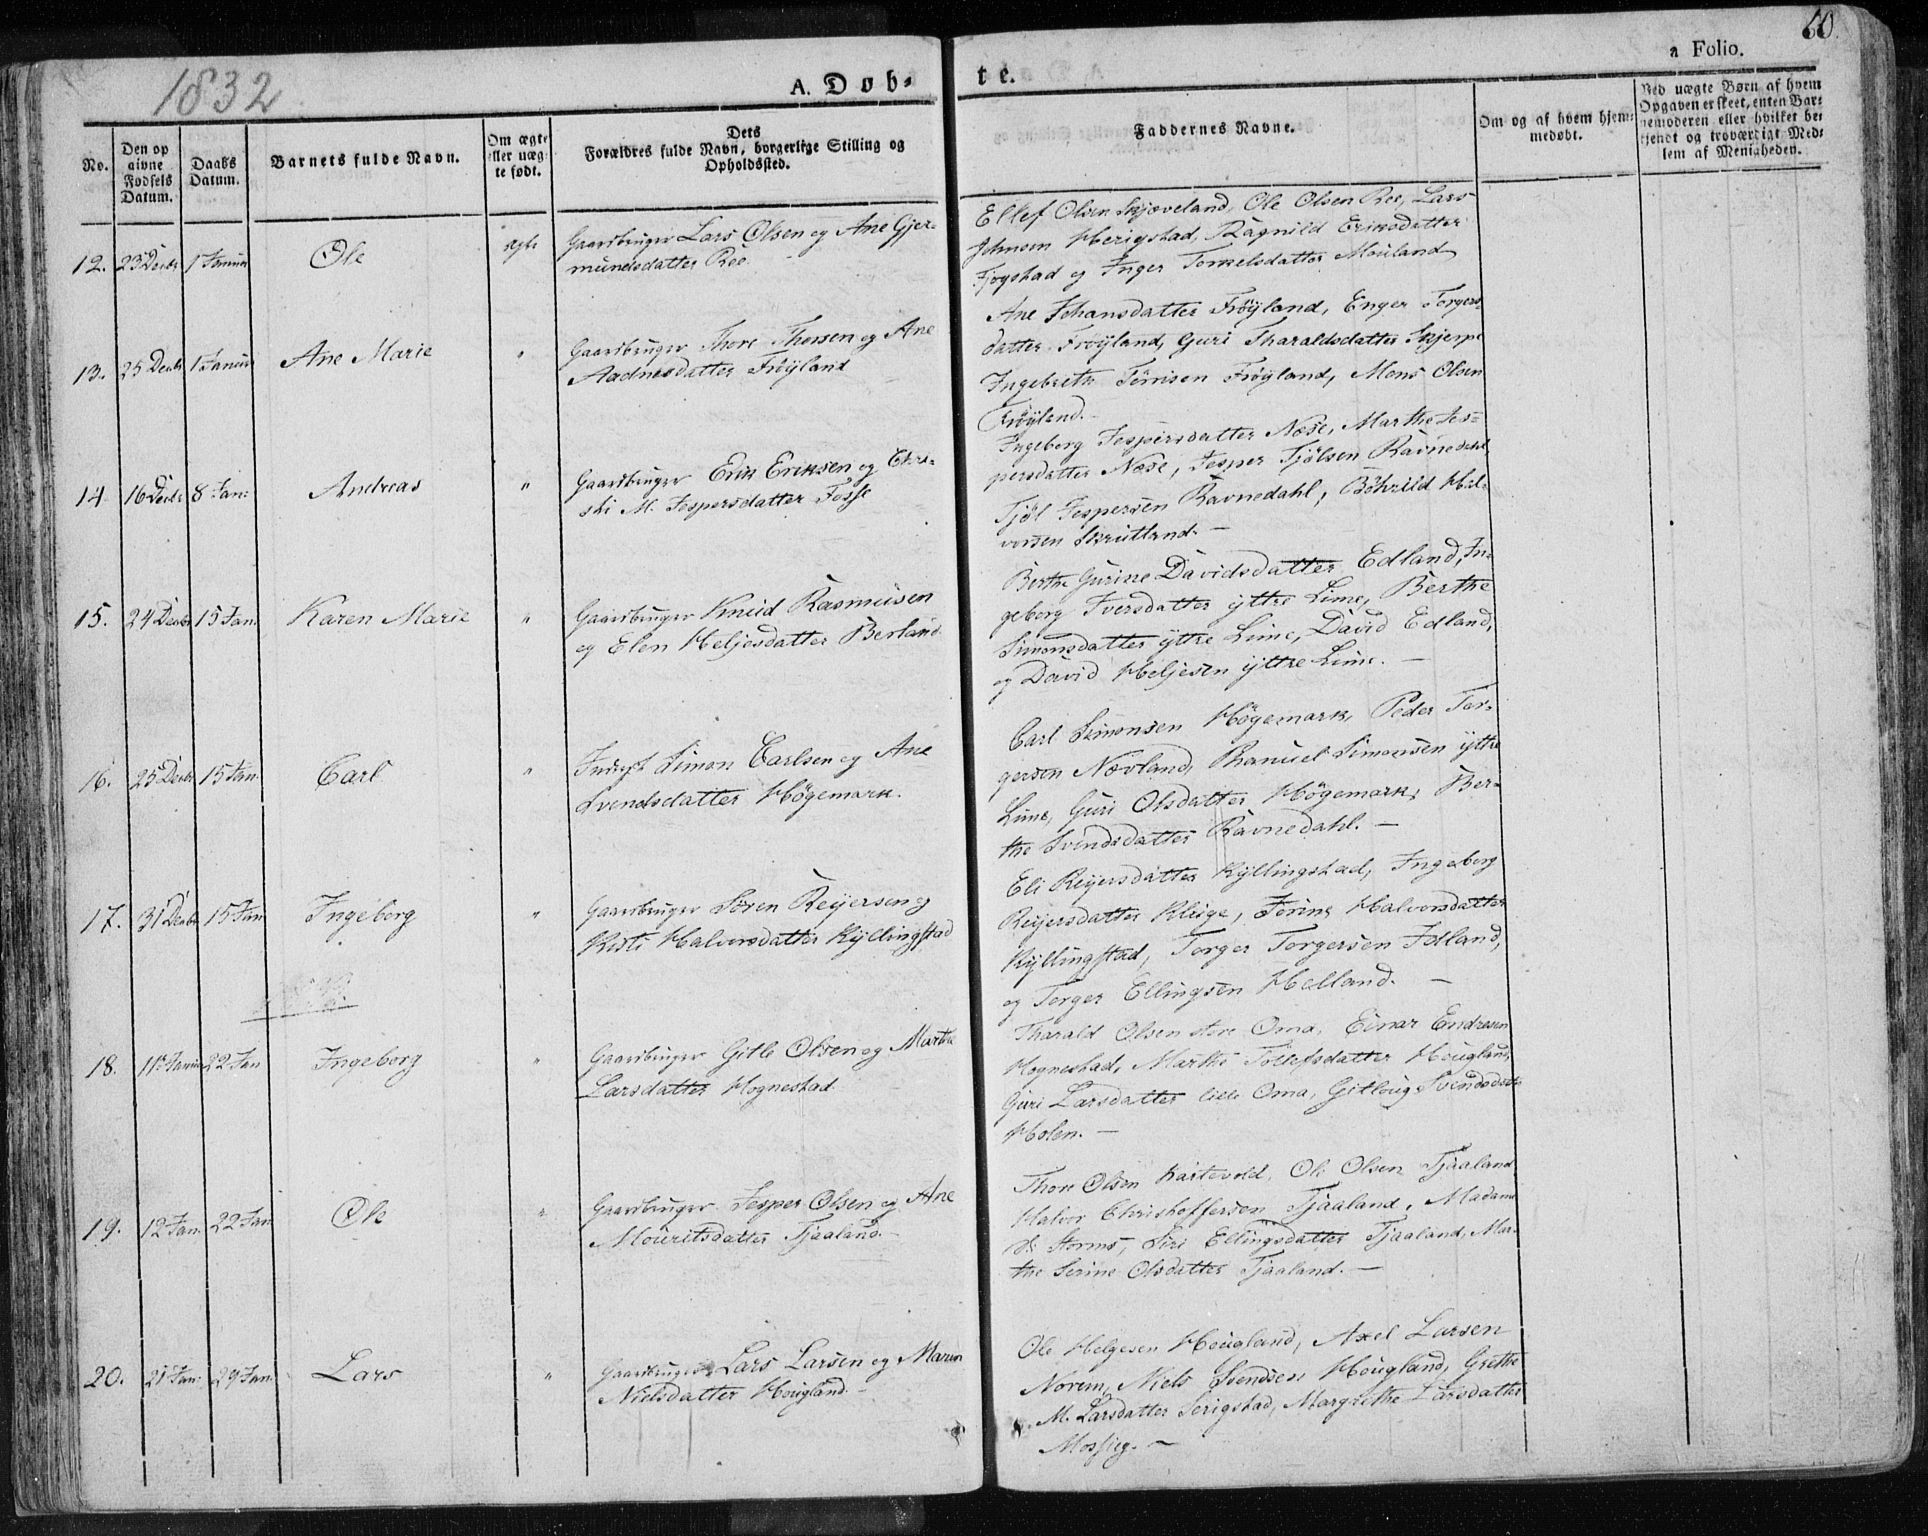 1832
A. Døb-
te.
a Folio.
60.
No.
Den op
givne
Fødsels
Datum.
Daabs
Datum.
Barnets fulde Navn.
Om ægte
eller uæg-
te født.
Dets
Forældres fulde Navn, borgerlige Stilling og
Opholdssted.
Faddernes Navne.
Om og af hvem hjem-
medøbt.
Ved uægte Børn af hvem
Opgaven er skeet, enten Bar-
nemoderen eller hvilket be-
kjendt og troværdigt Med-
lem af Menigheden.
12. 23 Decbr 1 Januar Ole ægte Gaardbruger Lars Olsen og Ane Gjer-
mundsdatter Ree.
Ellef Olsen Skjæveland, Ole Olsen Ree, Lars
Johnsen Herigstad, Ragnild Eriksdatter
Fjogstad og Inger Torkelsdatter Mouland
13. 25 Decbr 1 Januar Ane Marie " Gaardbruger Thore Thorsen og Ane
Aadnesdatter Frøyland
Ane Johansdatter Frøyland, Enger Torgers-
datter Frøyland, Guri Tharaldsdatter Skjerpe
Ingebreth Tønnisen Frøyland, Mons Olsen
Frøyland.
14. 16 Decbr 8 Jan: Andreas " Gaardbruger Erik Eriksen og Chri-
sti M. Jespersdatter Fosse
Ingeborg Jespersdatter Næse, Marthe Jes-
persdatter Næse, Jesper Tjølsen Ravnedahl
Tjøl Jespersen Ravnedahl, Bøhrild Hal-
vorsen Skrutland.
15. 24 Decbr 15 Jan. Karen Marie " Gaardbruger Knud Rasmusen
og Elen Heljesdatter Berland
Berthe Gurine Davidsdatter Edland, In-
geborg Iversdatter yttre Lime, Berthe
Simonsdatter yttre Lime, David Edland,
og David Heljesen yttre Lime. —
16. 25 Decbr 15 Jan. Carl " Simon Carlsen og Ane
Svendsdatter Høgemark.
Carl Simonsen Høgemark, Peder Tor-
gersen Nævland, Phanuel Simonsen yttre
Lime, Guri Olsdatter Høgemark, Ber-
the Svendsdatter Ravnedahl. —
17. 31 Decbr 15 Jan Ingeborg " Gaardbruger Søren Reyersen og
Kisti Halvorsdatter Kyllingstad
Eli Reyersdatter Kyllingstad, Ingeborg
Reyersdatter Kluge, Jorine Halvorsdatter
Kyllingstad, Torger Torgersen Idland,
og Torger Ellingsen Helland. —
18. 11 Januar 22 Jan Ingeborg " Gaardbruger Gitle Olsen og Marthe
Larsdatter Hognestad
Tharald Olsen store Oma, Einar Endresen
Hognestad, Marthe Tollefsdatter Hougland,
Guri Larsdatter lille Oma, Gitloug Svendsdatter
Holen. —
19. 12 Jan. 22 Jan Ole " Gaardbruger Jesper Olsen og Ane
Mouritsdatter Tjaaland.
Thore Olsen Kartevold, Ole Olsen Tjaaland
Halvor Christoffersen Tjaaland, Madame
Storms, Siri Ellingsdatter Tjaaland, Mar-
the Serine Olsdatter Tjaaland. —
20. 21 Jan. 29 Jan. Lars " Gaardbruger Lars Larsen og Maren
Nielsdatter Hougland.
Ole Helgesen Hougland, Axel Larsen
Norem, Niels Svendsen Hougland, Grethe
M. Larsdatter Serigstad, Margrethe Larsdatter
Mossige. —